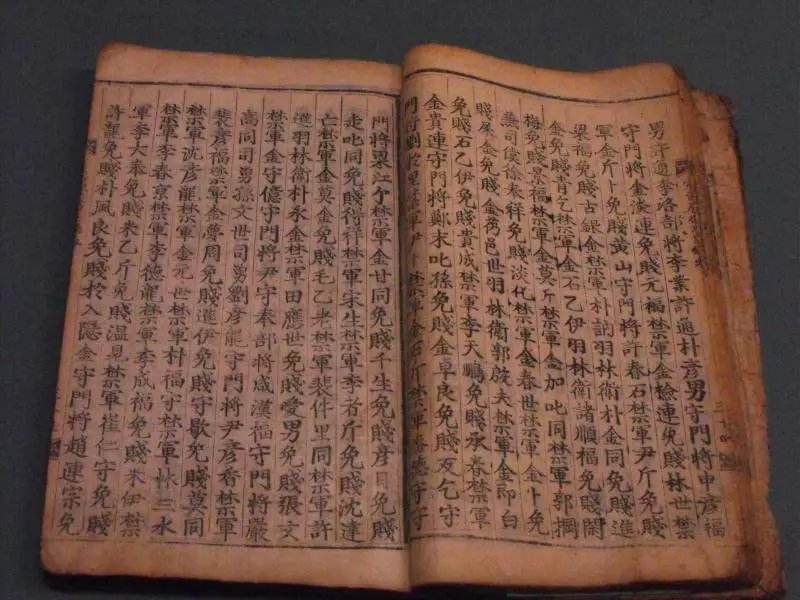 男許通李洛部將李業許通朴彦男守門將申彦福
守門將金淡連免賤元福禁軍金檢連免賤林世禁
軍金斤卜免賤黃山守門將許春石禁軍尹斤免賤
梁福免賤古錄金禁軍朴訥羽林衛朴金同免賤進
金免賤肯乞禁軍金石乙伊羽林衛諸順福免賤閑
梅免賤景福禁軍金莫斤禁軍金加叱同禁軍郭綱
無司僕徐泰祥免賤淡化禁軍金春世禁軍金卜免
賤屎金免賤金芿邑世羽林衛郭啟夫禁軍金即白
免賤石乙伊免賤貴成禁軍李天鵬免賤永春禁軍
金貴連守門將鄭末叱孫免賤金卓良免賤友乞守
門將劉里禁軍尹禁軍金石斤禁軍德守守
門將梁江久禁軍金甘同免賤千生免賤彦貝免賤
走叱同免賤得祥禁軍宋生禁軍李若斤免賤沈達
亡禁軍金莫金免賤毛乙老禁軍裴件里同禁軍許
進羽林衛朴永金禁軍田應世免賤愛男免賤張文
禁軍金守億守門將尹守奉部將咸漢福守門將嚴
尚同司勇孫文世司勇劉彦龍守門將尹彦香禁軍
裴彦福禁軍金夢周免賤進伊免賤守歇免賤莫同
禁軍沈彦龍禁軍金元世禁軍朴福守禁軍林三水
禁軍李春京禁軍李德龍禁軍李成福免賤朱伊禁
軍李大奉免賤米乙斤免賤溫見禁軍崔仁守免賤
許龍免賤朴風良免賤於入隱金守門將趙連宗免